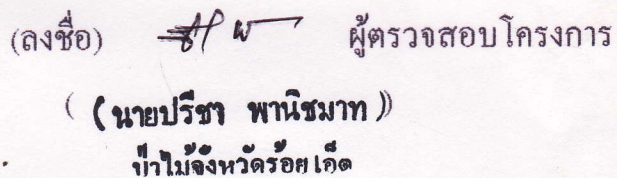 (ลงชื่อ) ผู้ตรวจสอบโครงการ
( (นายปรีชา พานิชมาท ))
ป่าไม้จังหวัดร้อยเอ็ด